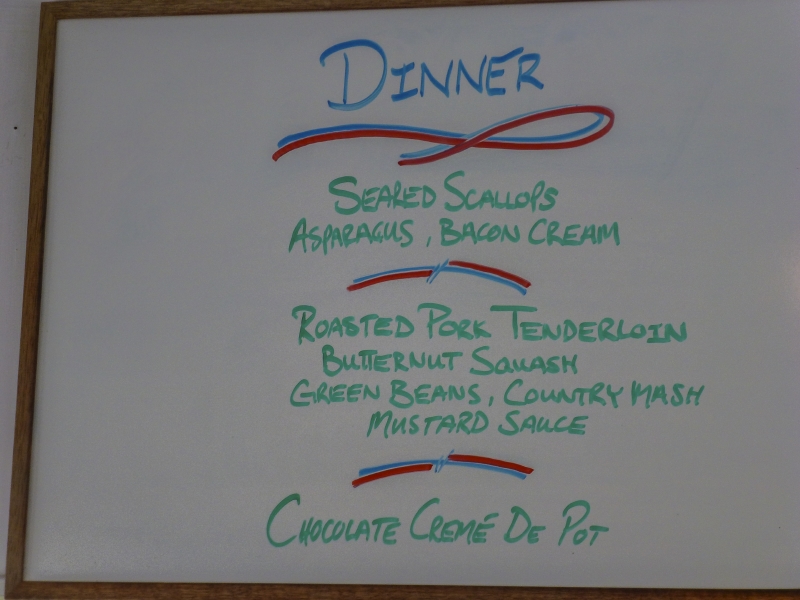 DINNER
SEARED SCALLOPS
ASPARAGUS, BACON CREAM
ROASTED PORK TENDERLOIN
BUTTERNUT SQUASH
GREEN BEANS, COUNTRY MASH
MUSTARD SAUCE
CHOCOLATE CREMÉ DE POT